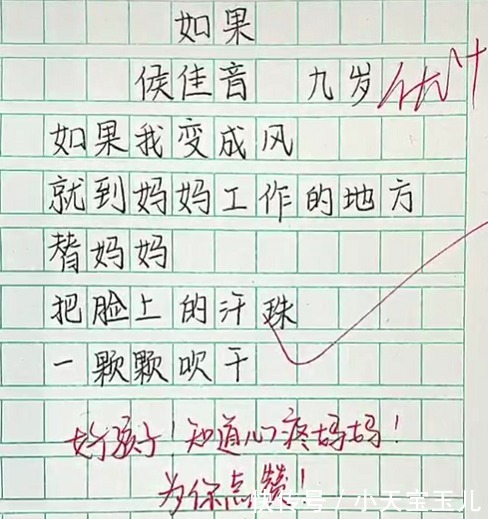 如果
侯佳音 九岁 优+
如果我变成风
就到妈妈工作的地方
替妈妈
把脸上的汗珠
一颗颗吹干
好孩子！知道心疼妈妈！
为你点赞！
快传号／小天宝玉儿